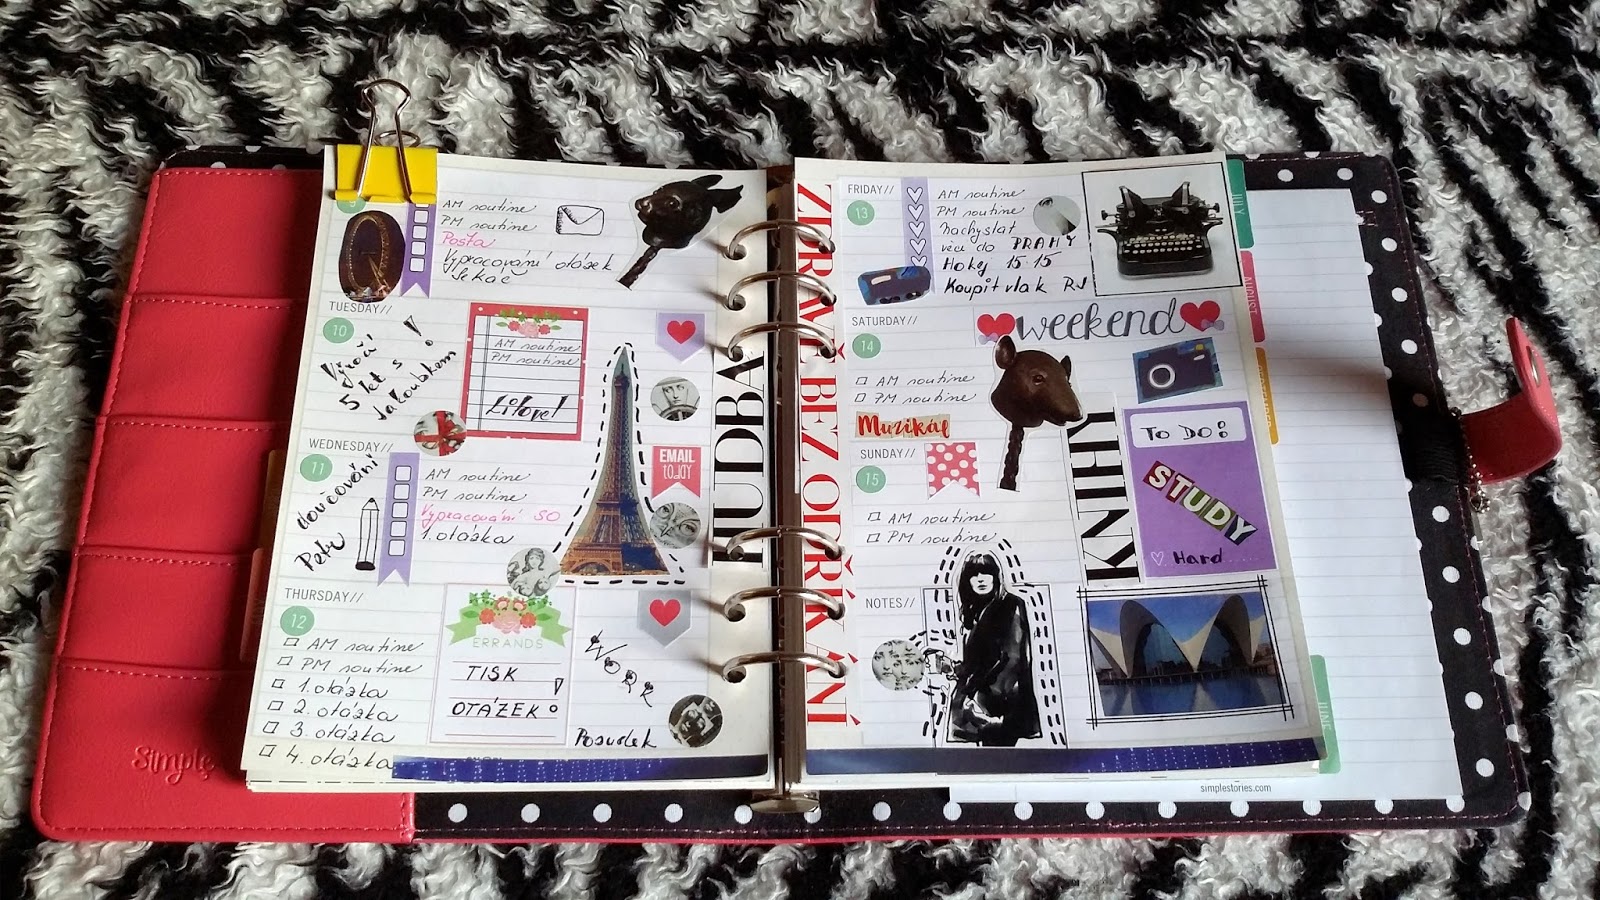 9
AM routine
PM routine
Pošta
Vypracování otázek
TUESDAY//
10
Výročí
5 let s !
Jakoubkem
AM routine
PM routine
Litovel
WEDNESDAY//
11
Doučování
Petr
AM routine
PM routine
Vypracování SO
1. otázka
EMAIL
TODAY
THURSDAY//
12
AM routine
PM routine
1. otázka
2. otázka
3. otázka
4. otázka
ERRANDS
TISK
OTÁZEK
!
WORK
Posudek
HUDBA
Simple
ZDRAVĚ BEZ ODŘÍKÁNÍ
FRIDAY//
13
AM routine
PM routine
Nachystat
věci do PRAHY
Hokej 15:15
Koupit vlak RJ
SATURDAY//
14
weekend
AM routine
PM routine
Muzikál
SUNDAY//
15
AM routine
PM routine
KNIHY
TO DO:
STUDY
Hard
NOTES//
simplestories.com
JULY
AUGUST
JUNE